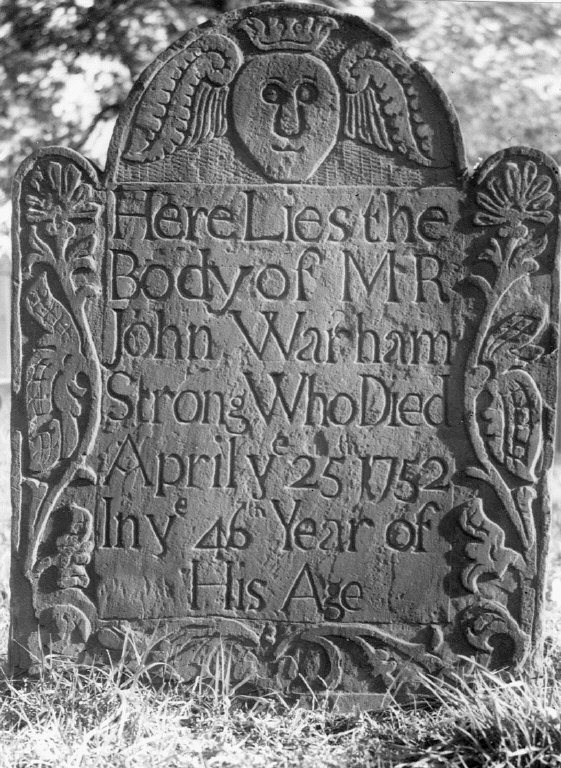 Here Lies the
Body of MR
John Warham
Strong Who Died
April yᵉ 25ᵗʰ 1752
In yᵉ 46ᵗʰ Year of
His Age